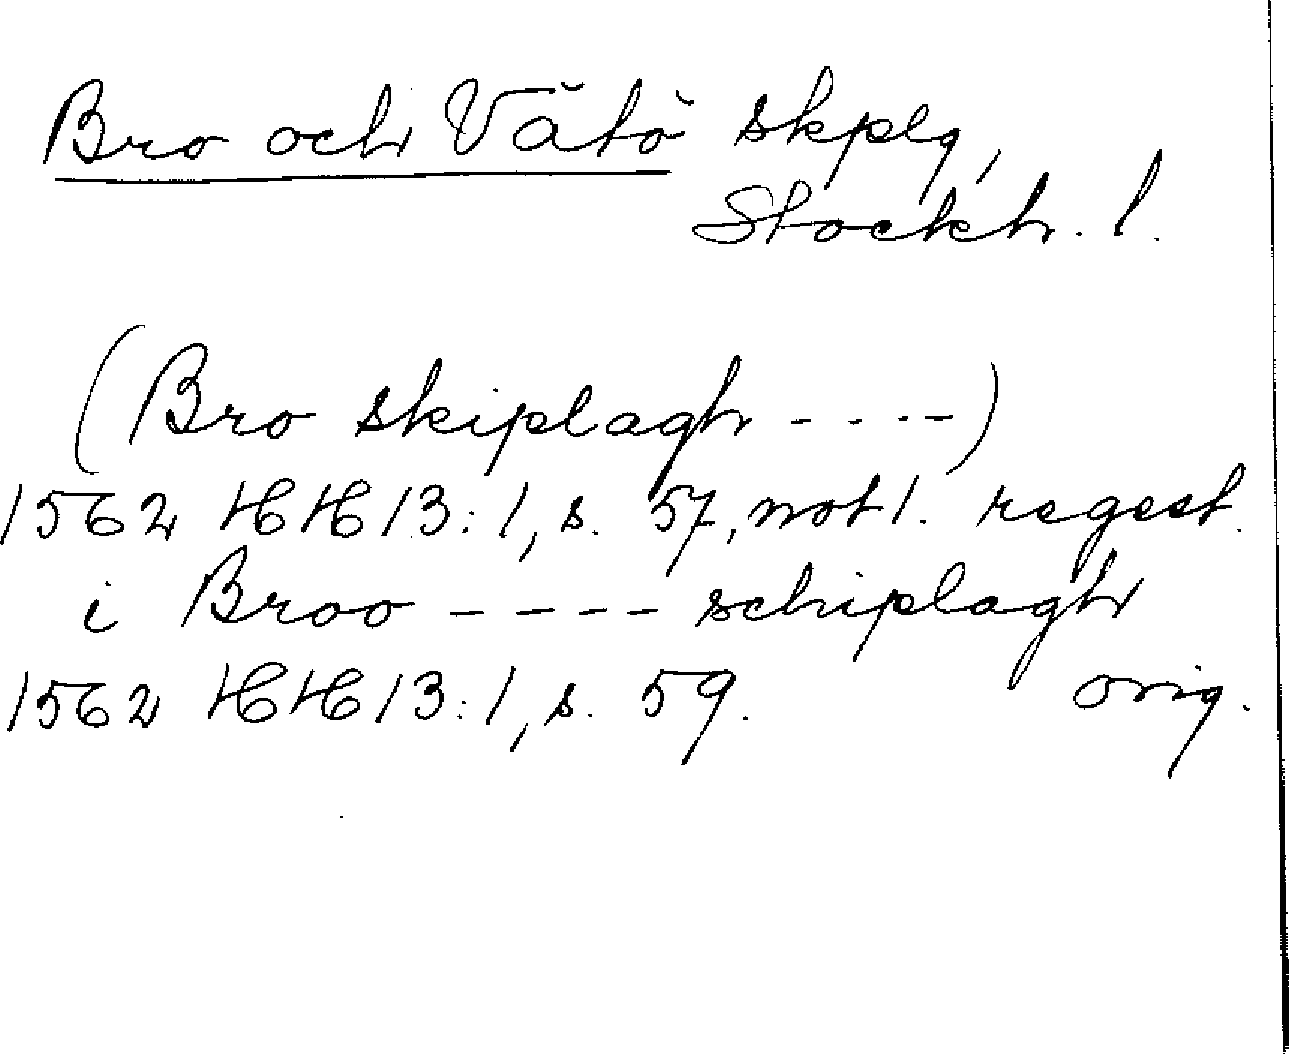 Bro och Vätö skplg,
Stockh. l.
(Bro skiplagh - - - -)
1562 HH 13:1, s. 57, not 1. regest.
i Broo - - - - schiplagh
1562 HH 13:1, s. 59. orig.